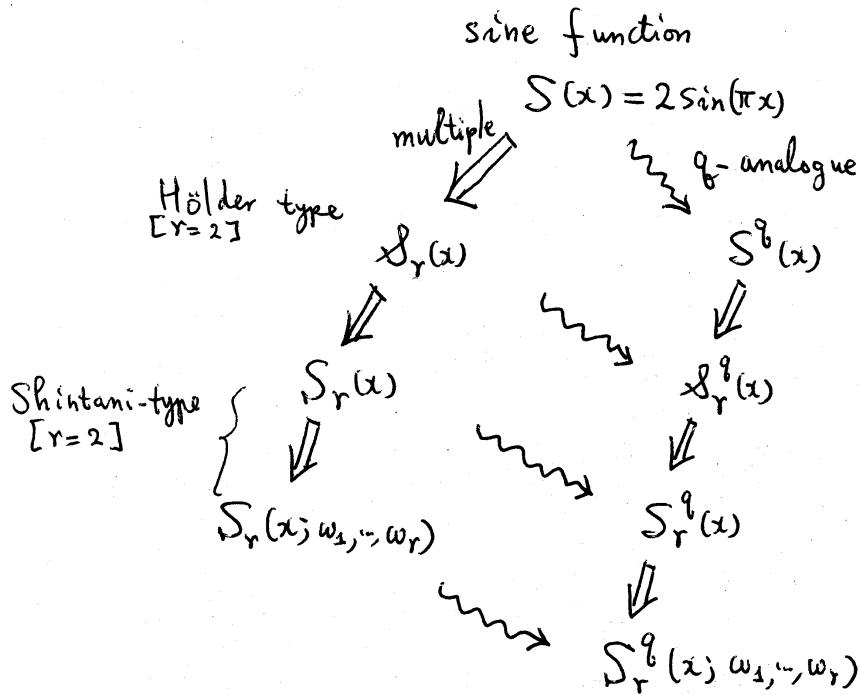 sine function
S(x) = 2 sin(πx)
multiple
q-analogue
Hölder type
[r=2]
𝒮_r(x)
S^q(x)
Shintani-type
[r=2]
S_r(x)
𝒮_r^q(x)
S_r(x; ω₁, ..., ω_r)
S_r^q(x)
S_r^q(x; ω₁, ..., ω_r)